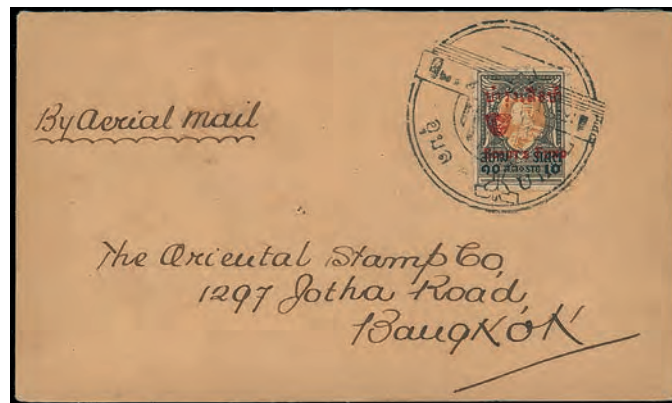 By Aerial mail
อุบล
The Oriental Stamp Co,
1297 Jotha Road,
BangKok
๑๐ สตางค์ 10